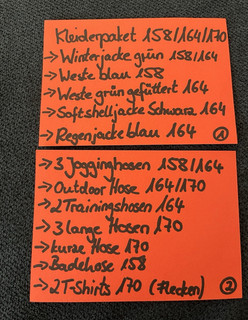 Kleiderpaket 158/164/170
→ Winterjacke grün 158/164
→ Weste blau 158
→ Weste grün gefüttert 164
→ Softshelljacke Schwarz 164
→ Regenjacke blau 164 ①
→ 3 Jogginghosen 158/164
→ Outdoor Hose 164/170
→ 2 Trainingshosen 164
→ 3 lange Hosen 170
→ kurze Hose 170
→ Badehose 158
→ 2 T-Shirts 170 (Flecken) ②